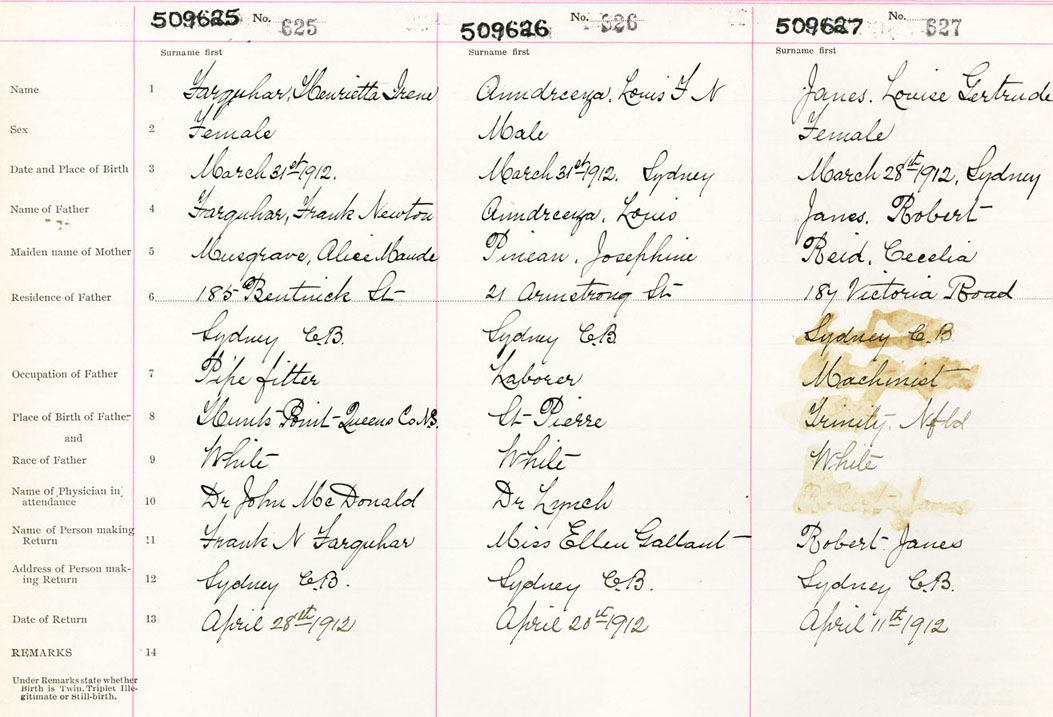 509625 No. 625
509626 No. 626
509627 No. 627
Surname first Surname first Surname first
Name 1 Farquhar, Henrietta Irene Anndreeza, Louis F N Janes. Louise Gertrude
Sex 2 Female Male Female
Date and Place of Birth 3 March 31st 1912. March 31st 1912. Sydney March 28th 1912, Sydney
Name of Father 4 Farquhar, Frank Newton Anndreeza, Louis Janes. Robert
Maiden name of Mother 5 Musgrave, Alice Maude Pinean, Josephine Reid, Cecelia
Residence of Father 6 185 Bentinck St 21 Armstrong St 187 Victoria Road
Sydney C.B. Sydney C.B Sydney C.B.
Occupation of Father 7 Pipe fitter Laborer Machinist
Place of Birth of Father 8 Hunts Point Queens Co N.S. St Pierre Trinity. Nfld
and
Race of Father 9 White White White
Name of Physician in
attendance 10 Dr John McDonald Dr Lynch
Name of Person making
Return 11 Frank N Farquhar Miss Ellen Gallant Robert Janes
Address of Person mak-
ing Return 12 Sydney C.B. Sydney C.B. Sydney C.B.
Date of Return 13 April 28th 1912 April 20th 1912 April 11th 1912
REMARKS 14
Under Remarks state whether
Birth is Twin, Triplet Ille-
gitimate or Still-birth.